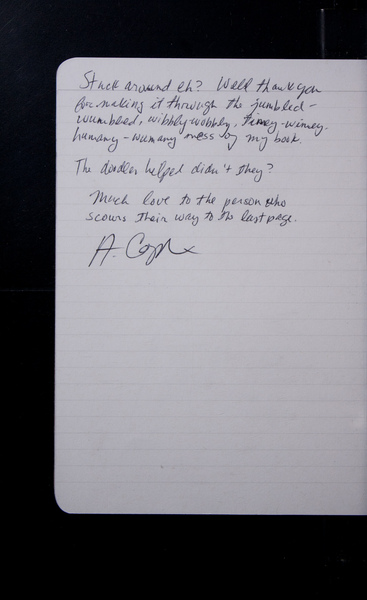 Stuck around eh? Well thank you
for making it through the jumbled-
wumbled, wibbly-wobbly, timey-wimey.
humany-wumany mess of my book.
The doodles helped didn't they?
Much love to the person who
scours their way to the last page.
A.